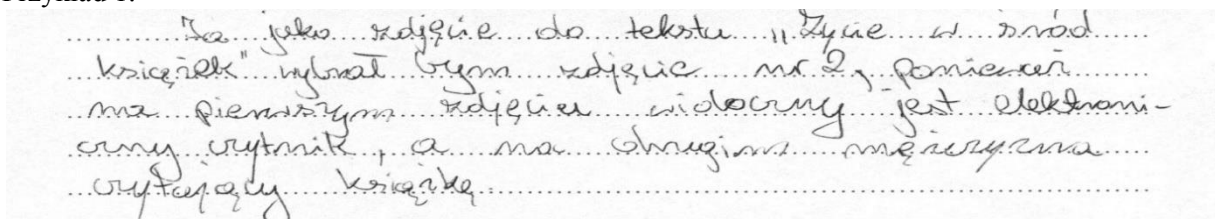 Ja jako zdjęcie do tekstu „Życie w śród
książek" wybrał bym zdjęcie nr 2, ponieważ
na pierwszym zdjęciu widoczny jest elektroni-
czny czytnik, a na drugim mężczyzna
czytający książkę.